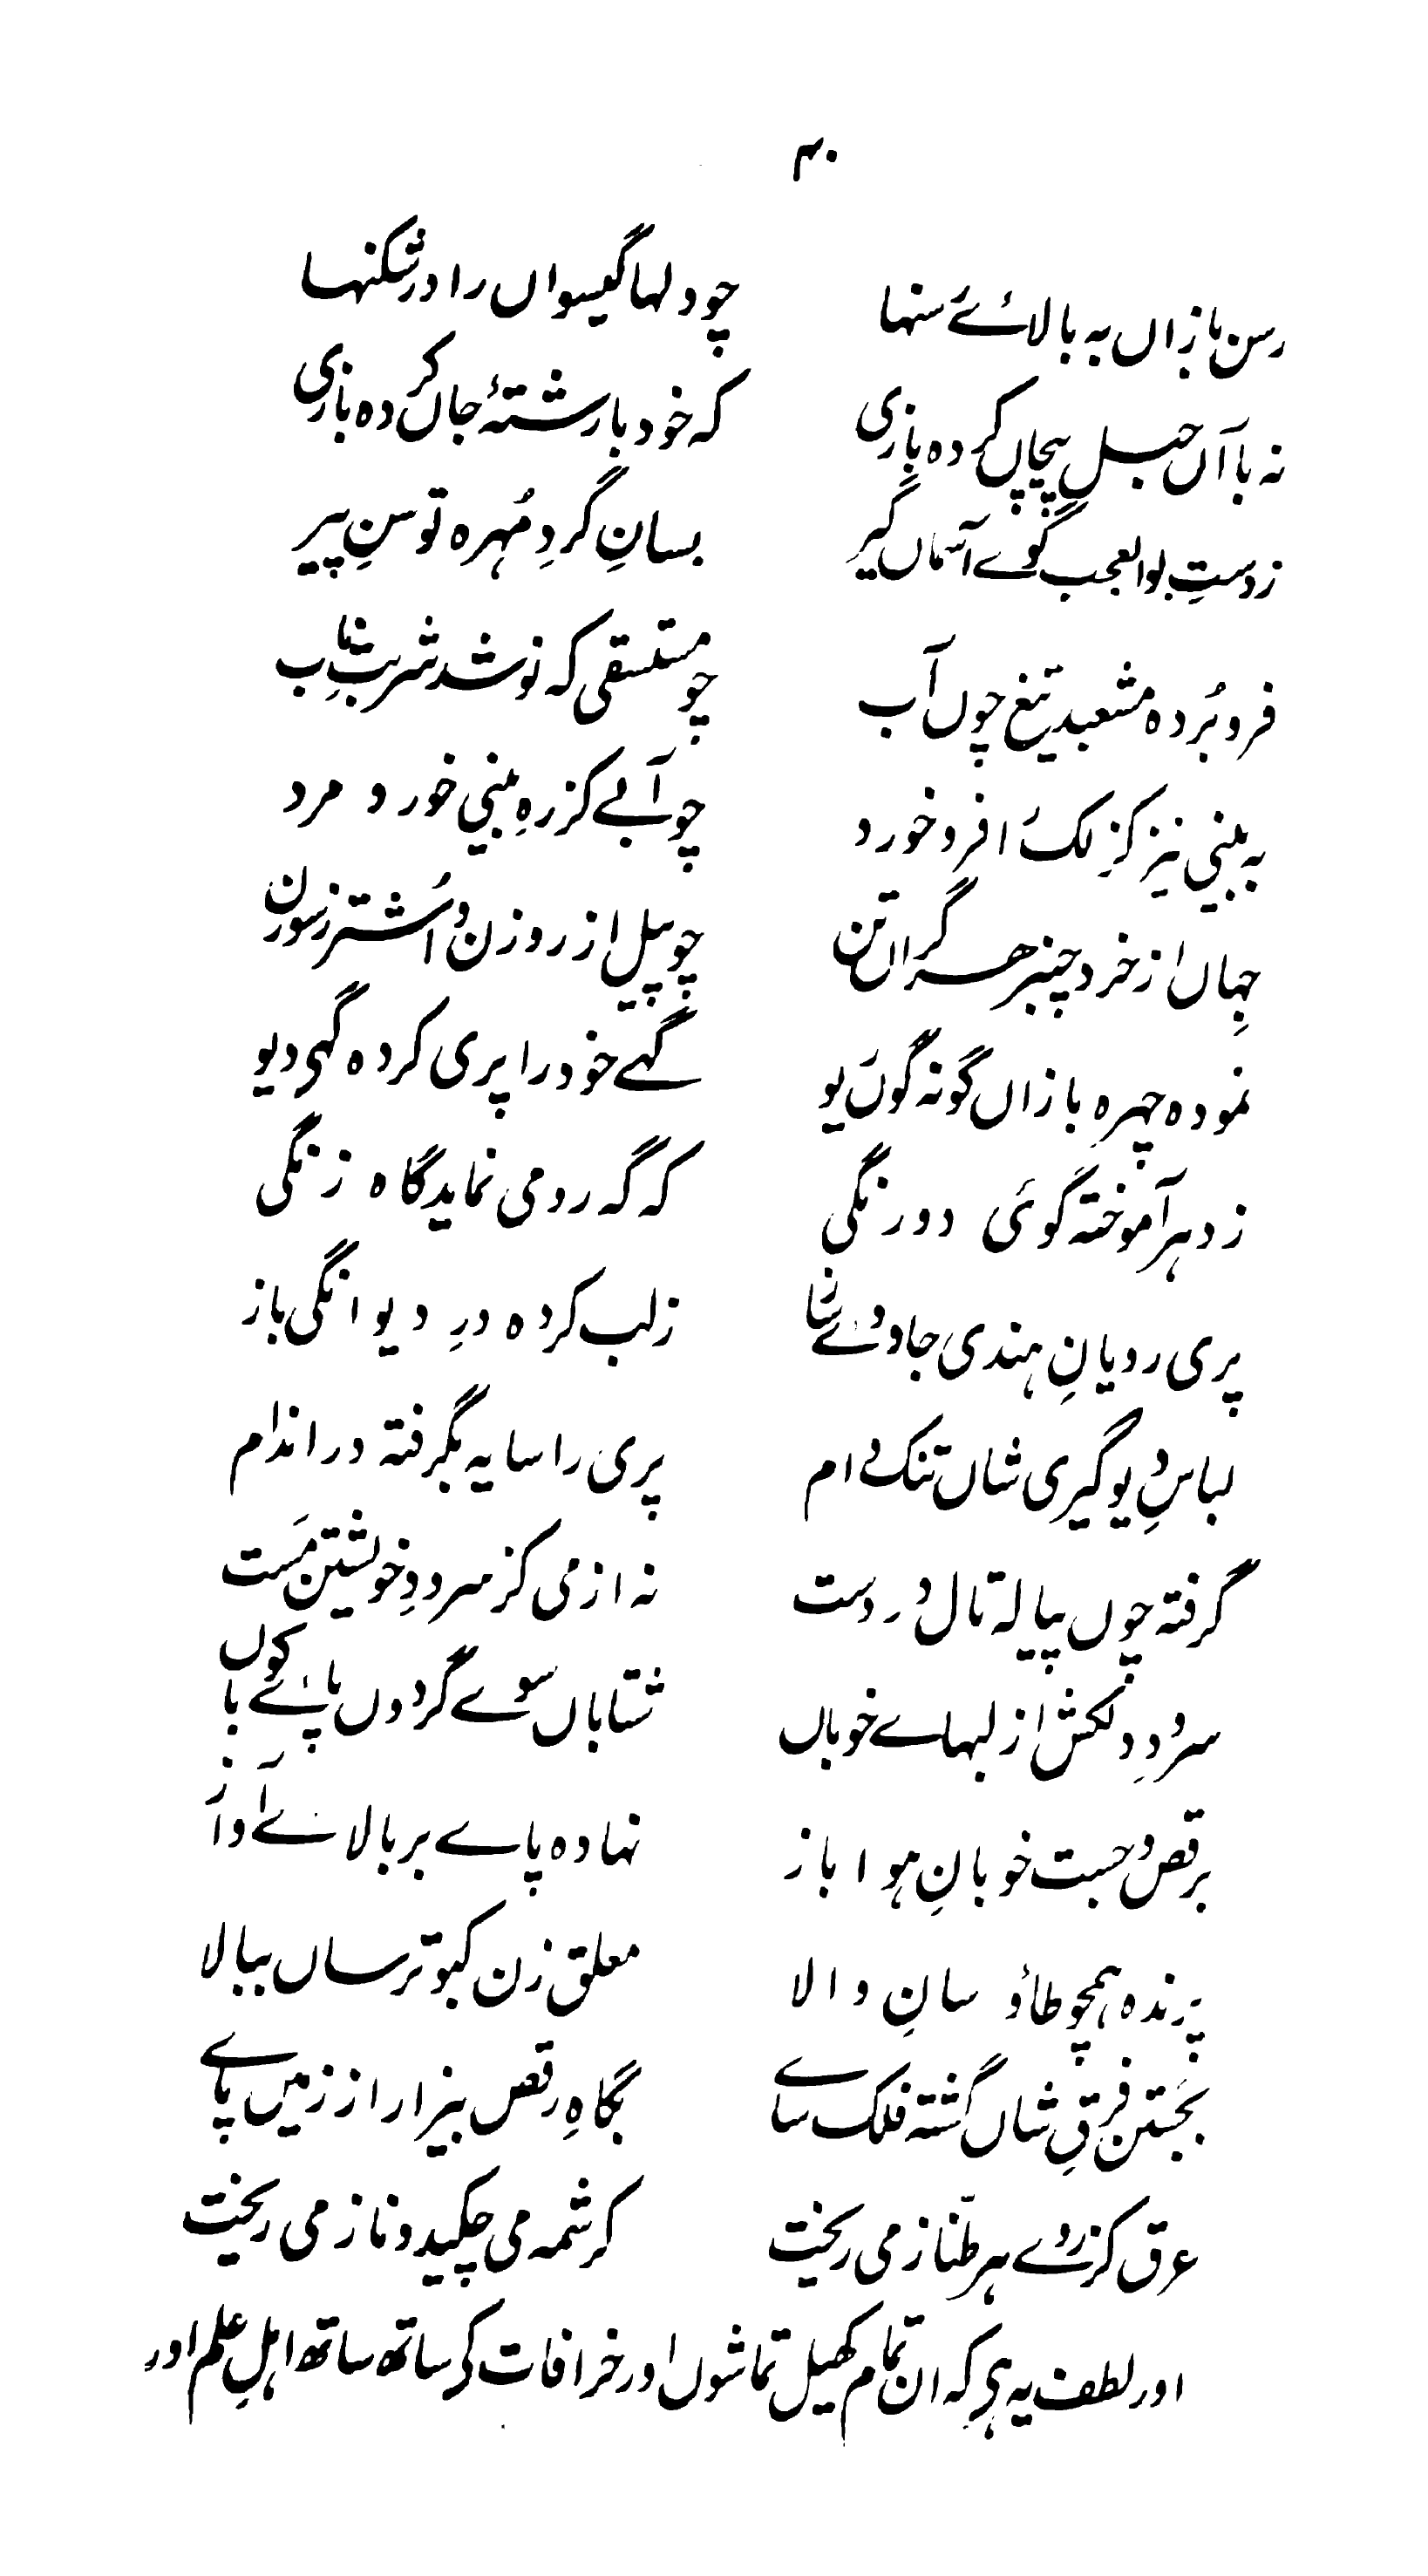 ۴۰
رسن بازاں بہ بالائے رسنہا چو دلہا گیسواں را در شکنہا
نہ با آں حبلِ پیچاں کردہ بازی کہ خود با رشتۂ جاں کردہ بازی
ز دستِ بوالعجب گوے آسماں گیر بسانِ گردِ مُہرہ توسنِ پیر
فرو بُردہ مشعبد تیغ چوں آب چو مستسقی کہ نوشد شربتِ ناب
بہ بینی نیز کزلک افرو خورد چو آبے کز رہِ بینی خورد مرد
جہاں از خرد چنبر ہر گراں تن چو پیل از روزن و اُشتر ز سوزن
نمودہ چہرہ بازاں گونہ گوں ریو گہے خود را پری کردہ گہی دیو
ز دہر آموختہ گوئی دو رنگی کہ گہ رومی نماید گاہ زنگی
پری رویانِ ہندی جادوے ساز ز لب کردہ درِ دیوانگی باز
لباسِ دیوگیری شاں تنک دام پری را سایہ بگرفتہ در اندام
گرفتہ چوں پیالہ تال در دست نہ از می کز سرودِ خویشتن مَست
سرودِ دلکش از لبہاے خوباں شتاباں سوے گردوں پائے کوباں
برقص و جست خوبانِ ہوا باز نہادہ پاے بر بالاے آواز
پرندہ ہمچو طاؤسانِ والا معلق زن کبوتر ساں ببالا
بجَستن فرقِ شاں گشتہ فلک ساے بگاہِ رقص بیزار از زمیں پاے
عرق کز روے ہر طنّاز می ریخت کرشمہ می چکید و ناز می ریخت
اور لطف یہ ہی کہ ان تمام کھیل تماشوں اور خرافات کی ساتھ ساتھ اہلِ علم اور